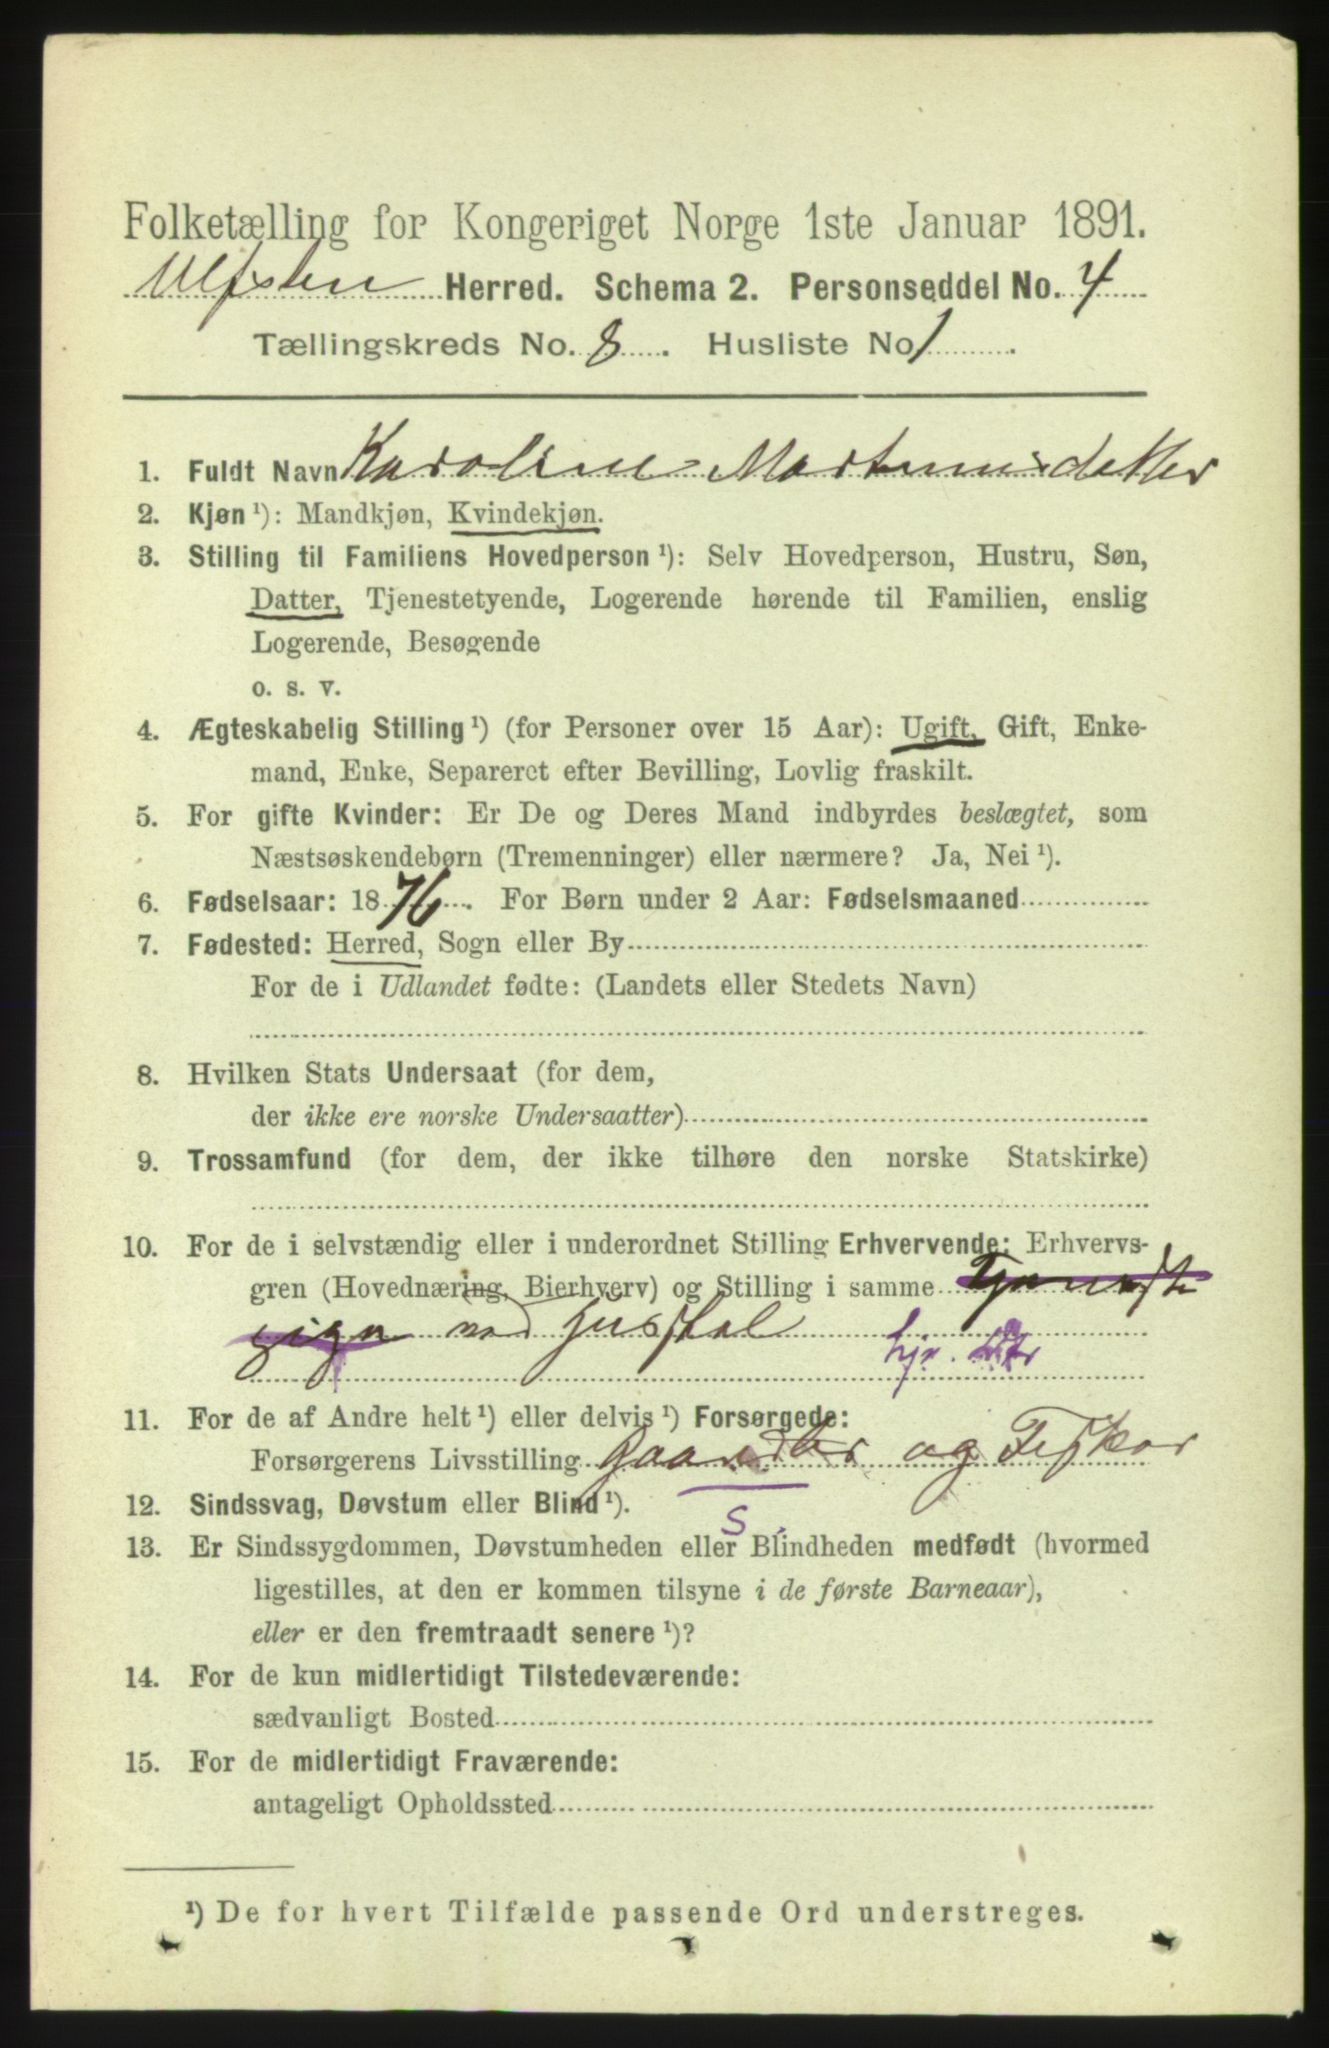 Folketælling for Kongeriget Norge 1ste Januar 1891.
Ulfsten Herred. Schema 2. Personseddel No. 4
Tællingskreds No. 8. Husliste No 1.
1. Fuldt Navn Karoline Martinusdatter
2. Kjøn ¹): Mandkjøn, Kvindekjøn.
3. Stilling til Familiens Hovedperson ¹): Selv Hovedperson, Hustru, Søn,
Datter, Tjenestetyende, Logerende hørende til Familien, enslig
Logerende, Besøgende
o. s. v.
4. Ægteskabelig Stilling ¹) (for Personer over 15 Aar): Ugift, Gift, Enke-
mand, Enke, Separeret efter Bevilling, Lovlig fraskilt.
5. For gifte Kvinder: Er De og Deres Mand indbyrdes beslægtet, som
Næstsøskendebørn (Tremenninger) eller nærmere? Ja, Nei ¹).
6. Fødselsaar: 1876. For Børn under 2 Aar: Fødselsmaaned
7. Fødested: Herred, Sogn eller By
For de i Udlandet fødte: (Landets eller Stedets Navn)
8. Hvilken Stats Undersaat (for dem,
der ikke ere norske Undersaatter)
9. Trossamfund (for dem, der ikke tilhøre den norske Statskirke)
10. For de i selvstændig eller i underordnet Stilling Erhvervende: Erhvervs-
gren (Hovednæring, Bierhverv) og Stilling i samme
ved
11. For de af Andre helt ¹) eller delvis ¹) Forsørgede:
Forsørgerens Livsstilling og Fisker
S.
12. Sindssvag, Døvstum eller Blind ¹).
13. Er Sindssygdommen, Døvstumheden eller Blindheden medfødt (hvormed
ligestilles, at den er kommen tilsyne i de første Barneaar),
eller er den fremtraadt senere ¹)?
14. For de kun midlertidigt Tilstedeværende:
sædvanligt Bosted
15. For de midlertidigt Fraværende:
antageligt Opholdssted
¹) De for hvert Tilfælde passende Ord understreges.